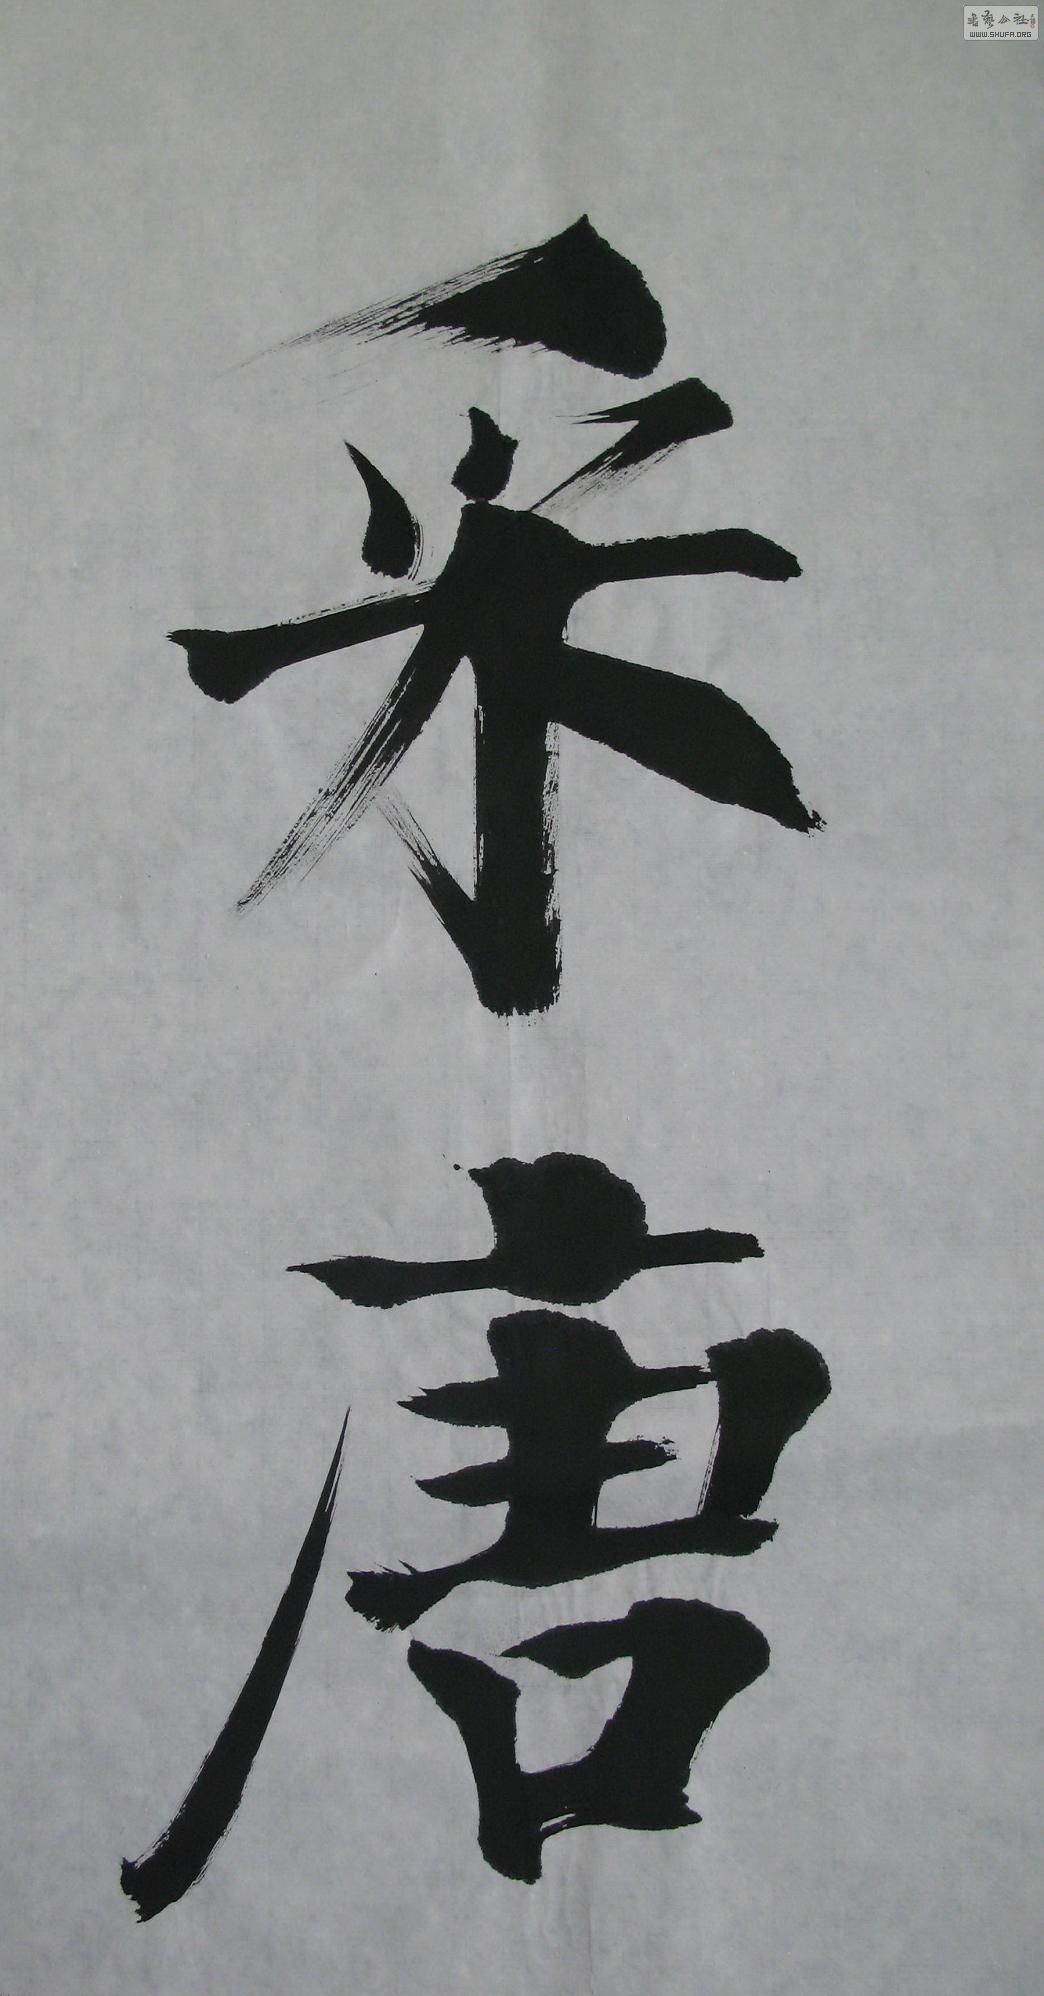 采
唐
书艺公社
WWW.SHUFA.ORG